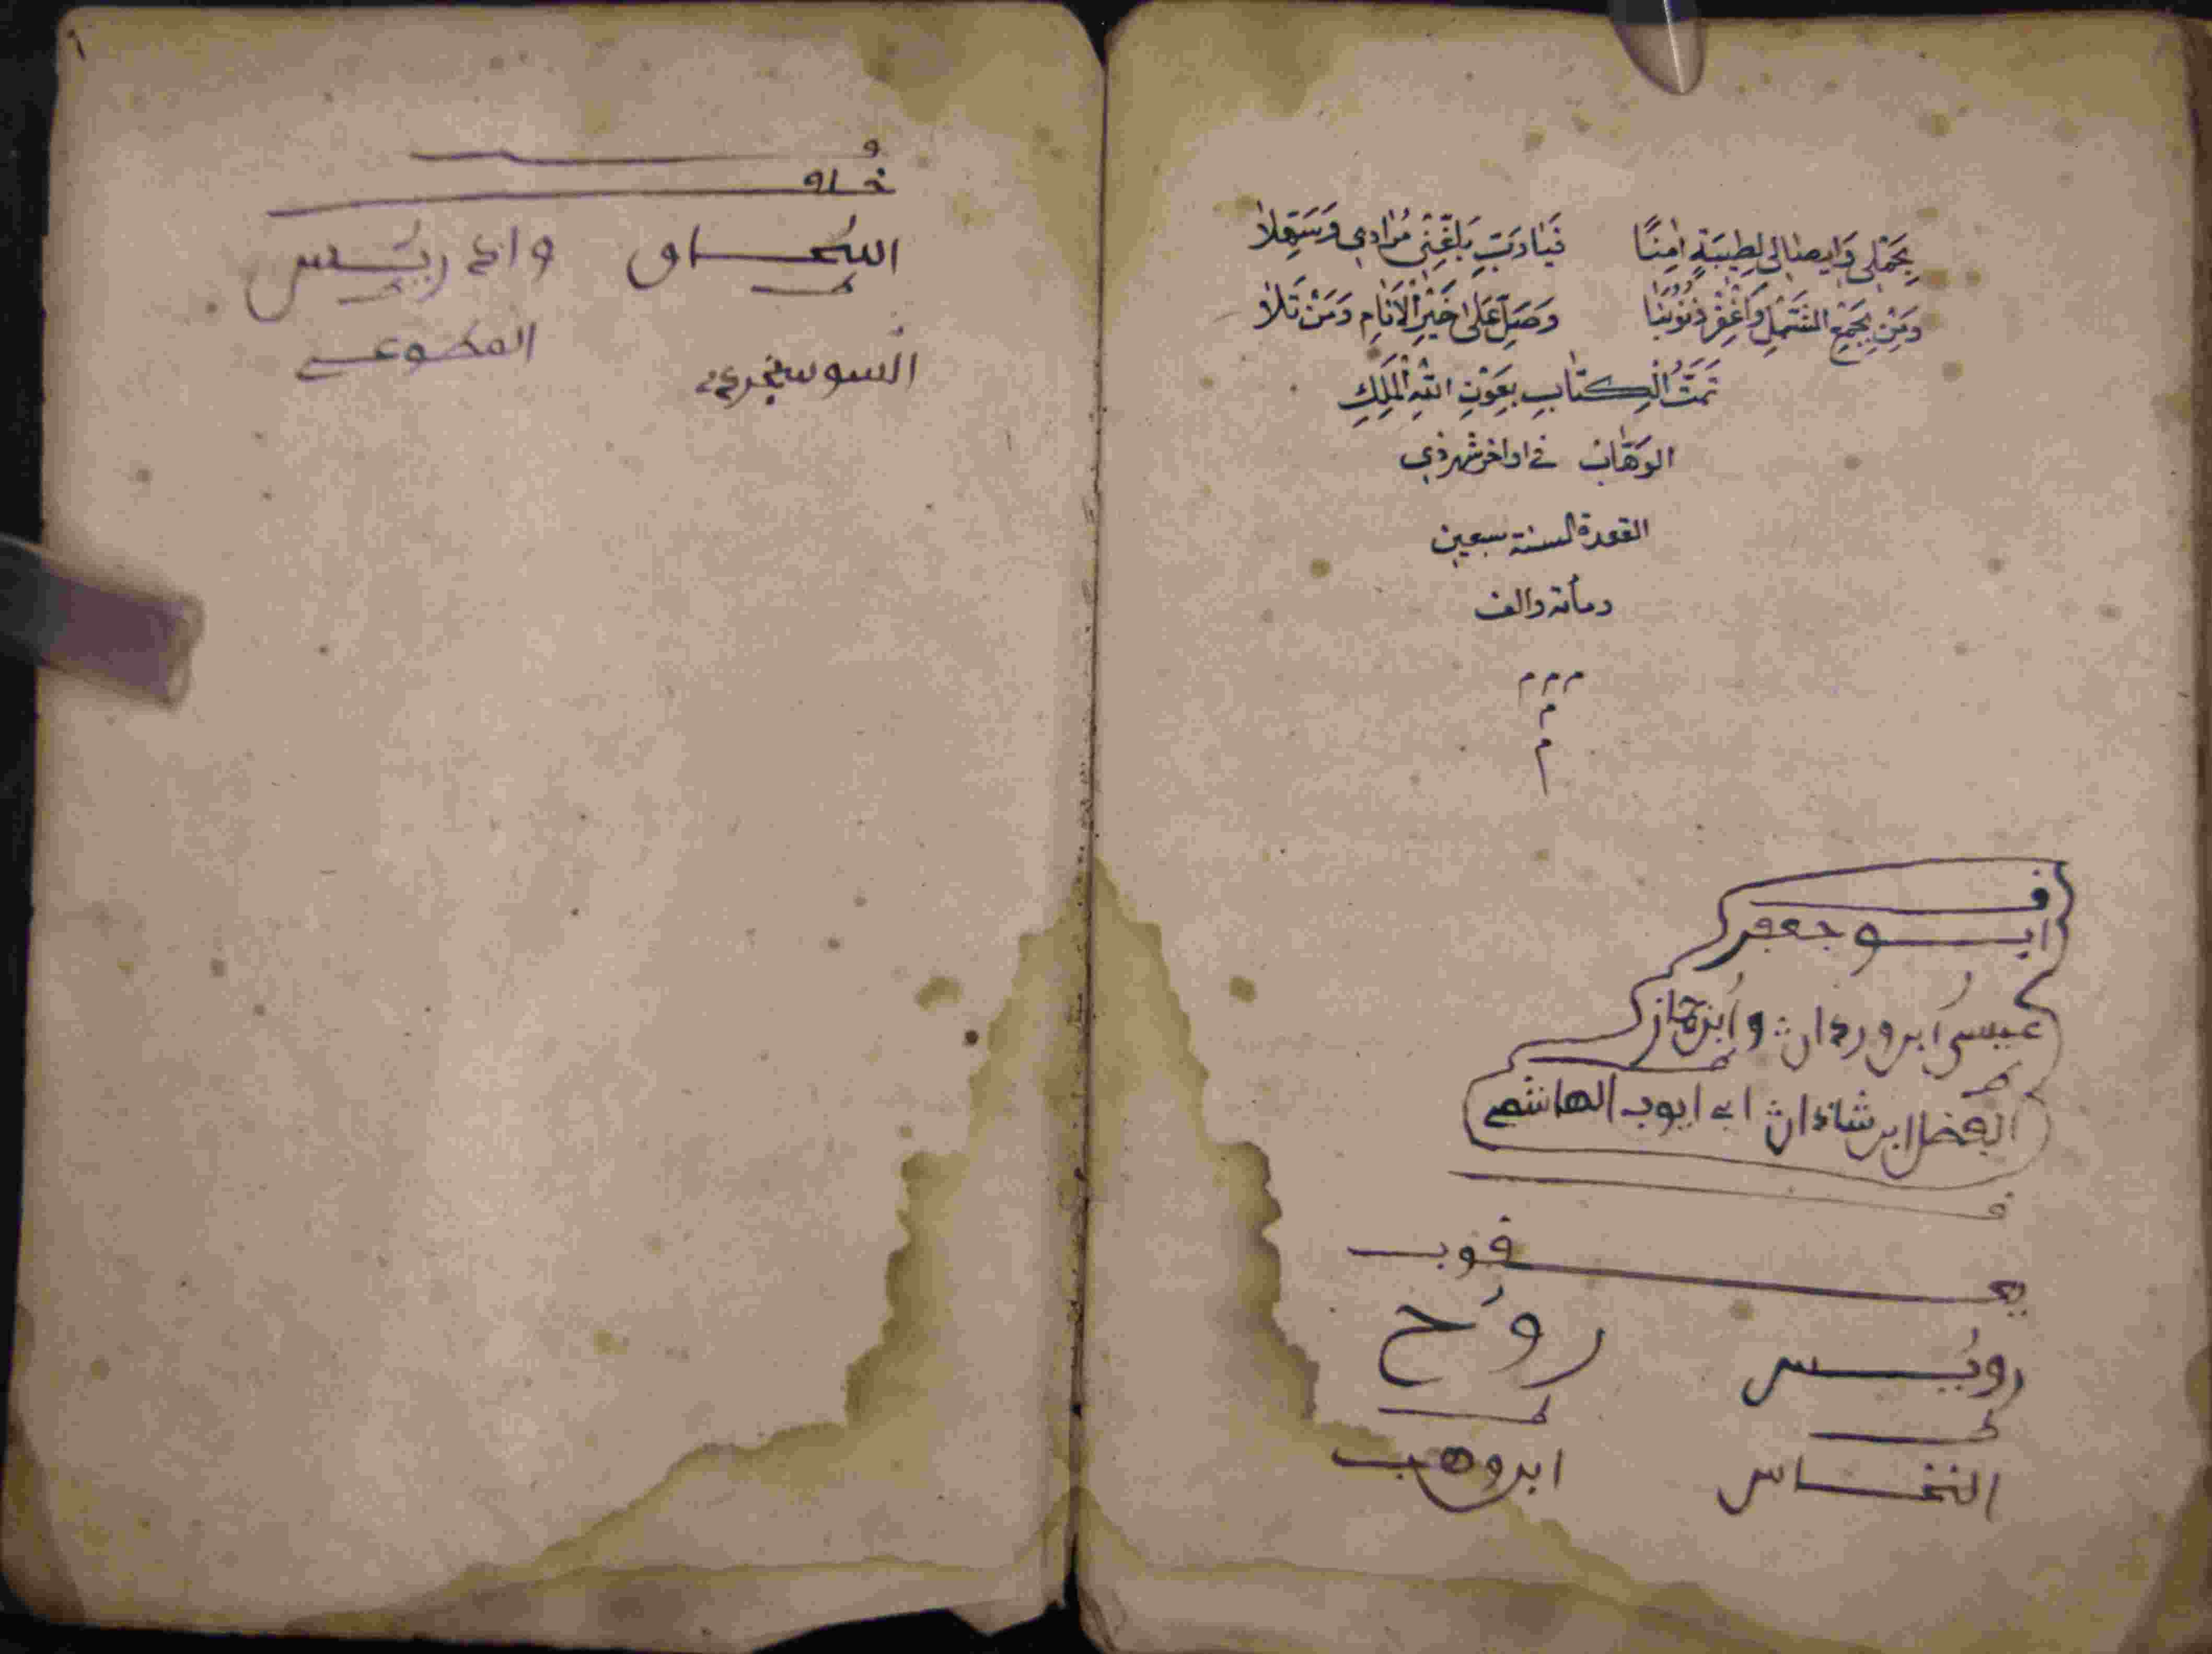 بِحَمْلِي وَايصالي لِطِيبَةٍ امِنًا فَيَا رَبِّ بَلِّغْنِي مُرَادِي وَسَهِّلَا
وَمُنَّ بِجَمْعِ الشَّمْلِ وَاغْفِرْ ذُنُوبَنَا وَصَلِّ عَلَى خَيْرِ الْأَنَامِ وَمَنْ تَلَا
تَمَّتُ الْكِتَابِ بِعَوْنِ اللهِ الْمَلِكِ
الوَهَّابْ في اواخر شهر ذي
القعدة لسنة سبعين
ومأتة والف
م م م
م
م
ابو جعفر
عيسى ابن وردان وابن جماز
الفضل ابن شاذان ابي ايوب الهاشمي
يعقوب
رويس روح
النخاس ابن وهب
خلف
اسحاق وادريس
السوسنجردي المطوعي